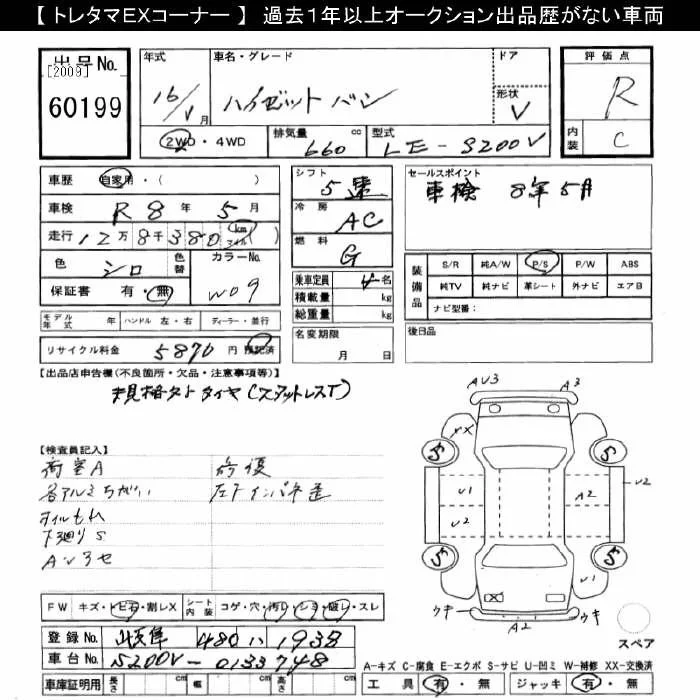 【 トレタマEXコーナー 】 過去1年以上オークション出品歴がない車両
出品No.
[2009]
60199
年式
16/1月
車名・グレード
ハイゼット バン
ドア
形状
V
評価点
R
内装
C
2WD・4WD
排気量 660 cc
型式 LE-S200V
車歴 自家用・( )
車検 R8年5月
走行 12万8千380 km マイル ( )
色 シロ 色替
カラーNo. W09
保証書 有・無
モデル年式 年 ハンドル 左・右 ディーラー・並行
リサイクル料金 5870円 預託済
シフト 5速
冷房 AC
燃料 G
乗車定員 4名
積載量 kg
総重量 kg
名変期限 月 日
セールスポイント
車検 8年5月
装備品
S/R 純A/W P/S P/W ABS
純TV 純ナビ 革シート 外ナビ エアB
ナビ型番:
後日品
【出品店申告欄(不良箇所・欠品・注意事項等)】
規格外タイヤ(スタットレスT)
【検査員記入】
荷室A
各アルミちがい
オイルもれ
下廻りS
修復
左Fインパネ歪
AV3 A3
XX
5 5
U1 U2 A2 U2
5 5
U1
X
ウキ A2 ウキ
スペア
FW キズ・トビ石・割レX シート内装 コゲ・穴・汚レ・シミ・破レ・スレ
登録No. 岐阜 480 い 1938
車台No. S200V-0133748
車庫証明用 長さ cm 幅 cm 高さ cm
A-キズ C-腐食 E-エクボ S-サビ U-凹ミ W-補修 XX-交換済
工具 有・無 ジャッキ 有・無